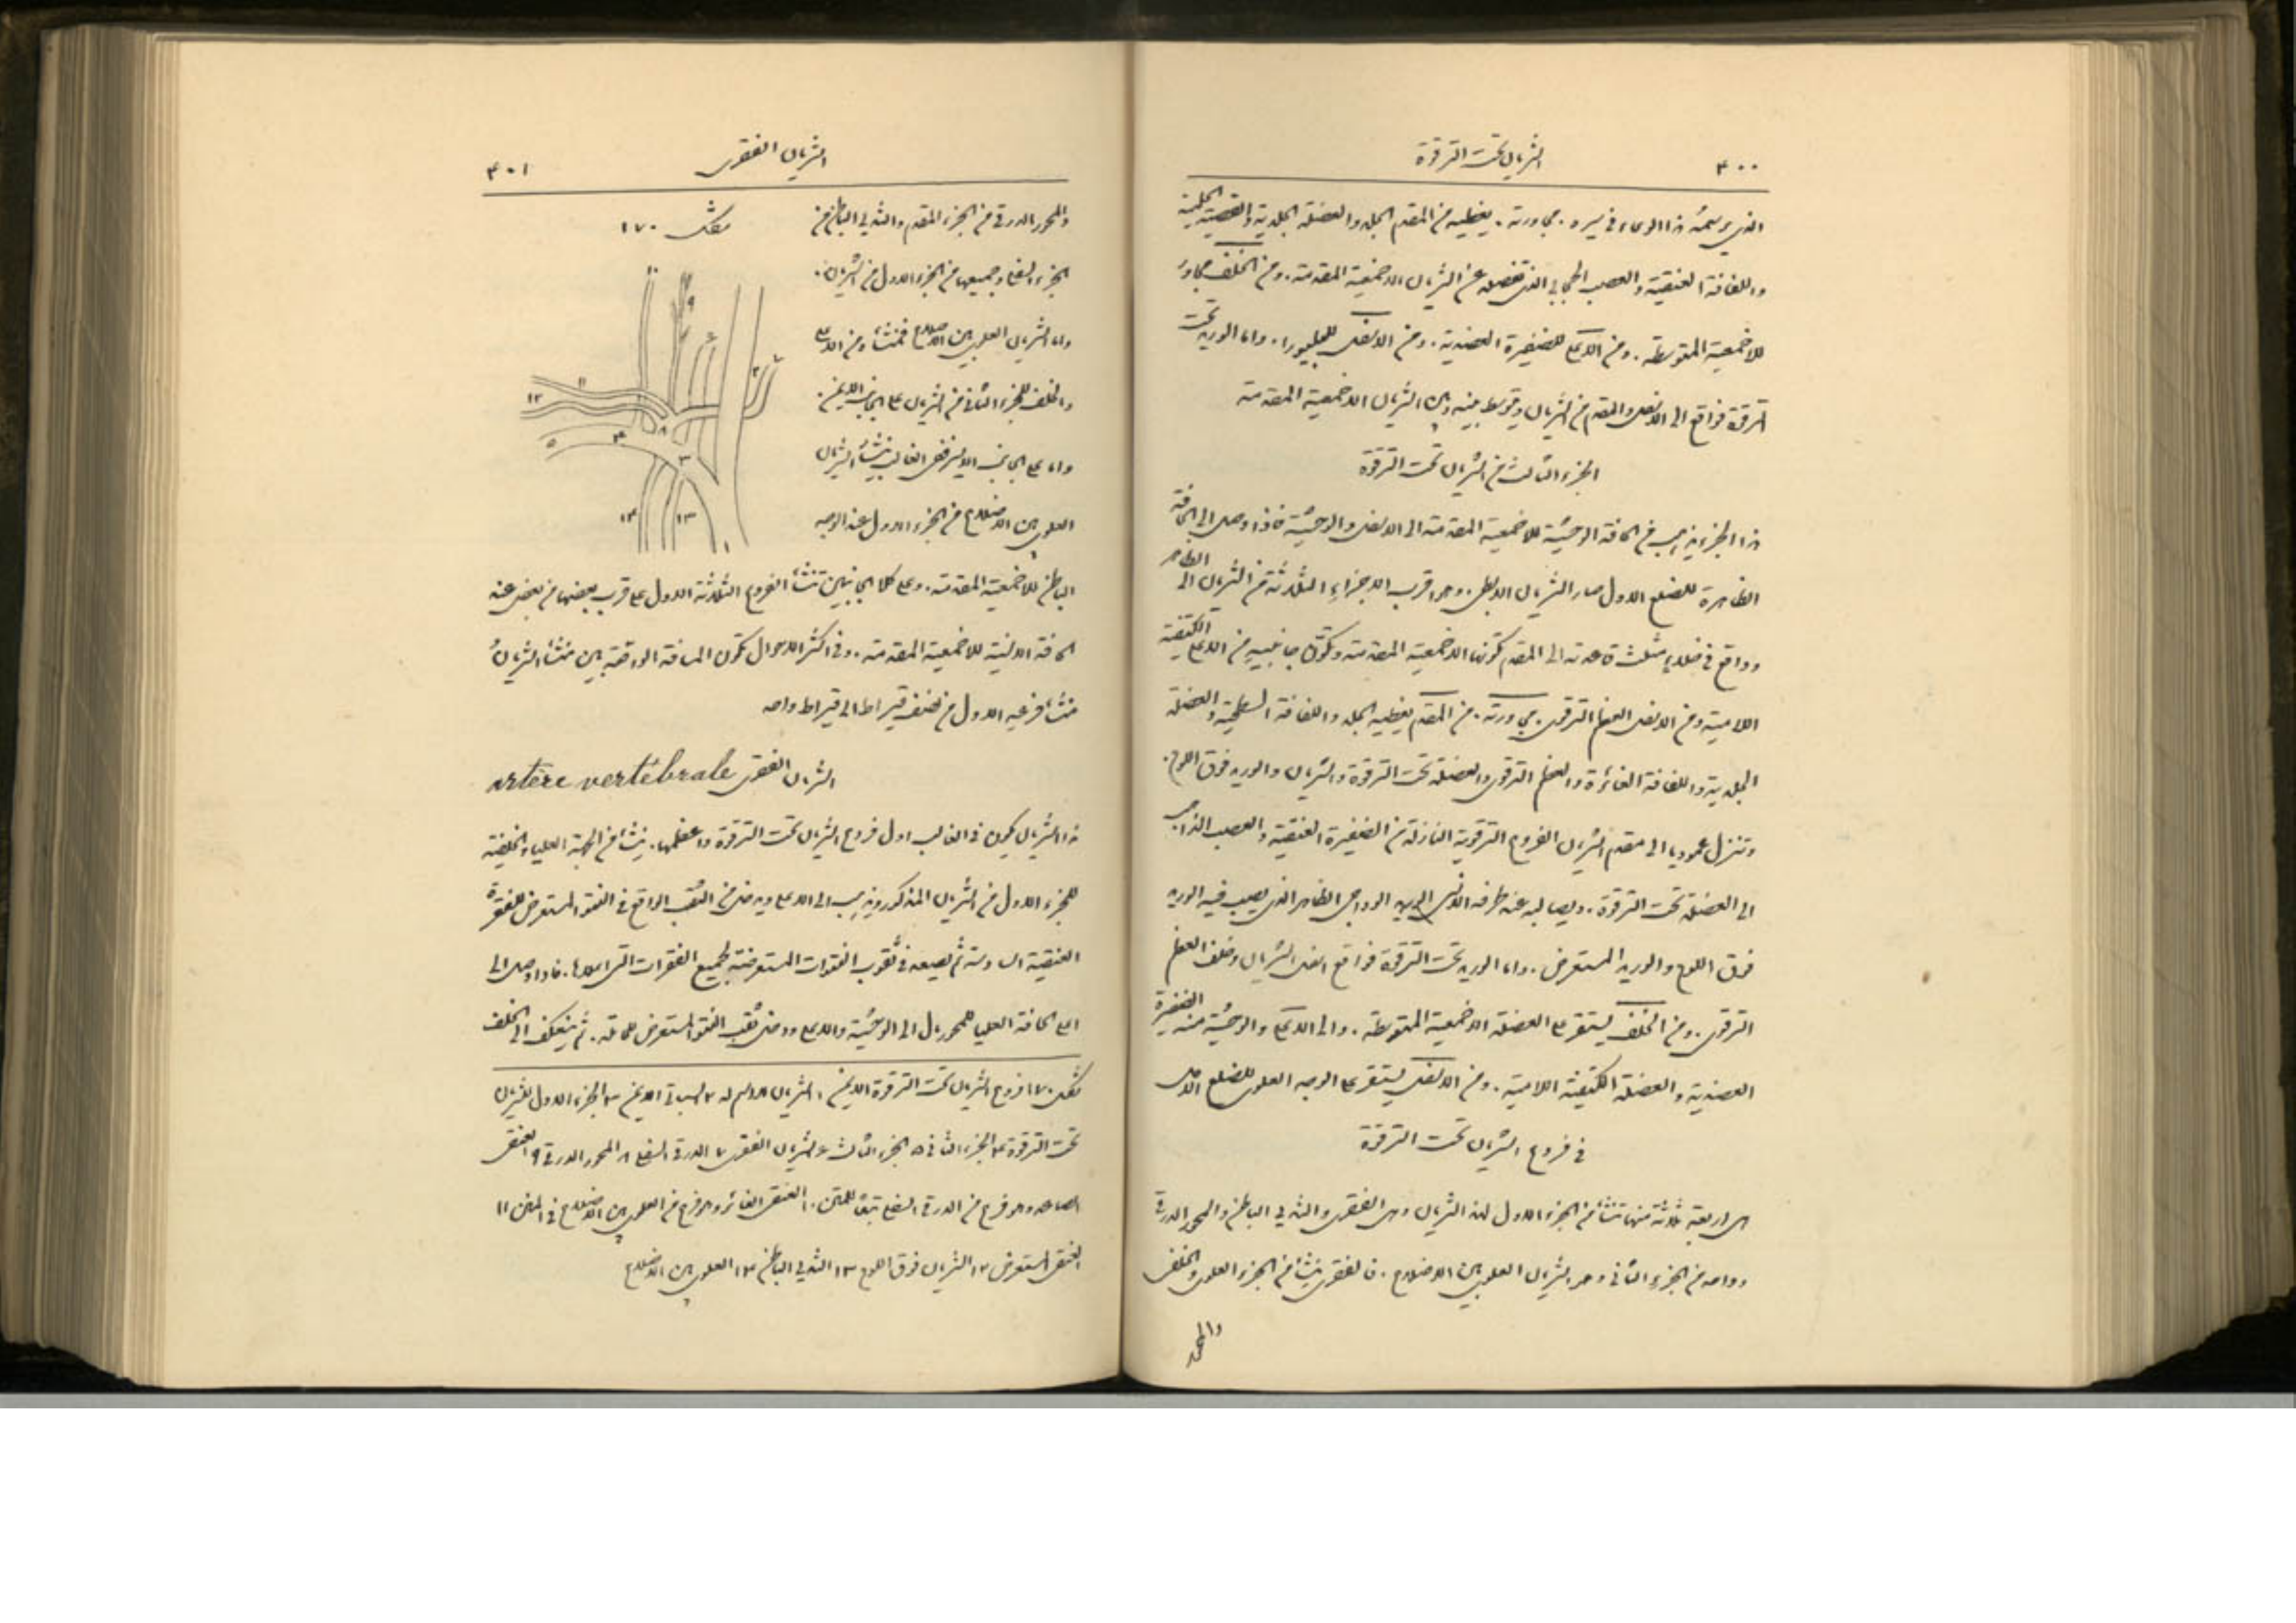 ٣٠٠
الشريان تحت الترقوة
الذي يرسمهُ هذا الوعاء في سيره. مجاورته. يغطيه من المقدم الجلد والعضلة الجلدية والقصية الحلمية
واللفافة العنقية والعصب الحجابي الذي تفصله عن الشريان الاخمعية المقدمة. ومن الخلف مجاور
للاخمعية المتوسطة. ومن الاعلى للضفيرة العضدية. ومن الاسفل للبليورا. واما الوريد تحت
الترقوة فواقع الى الاسفل والمقدم من الشريان ويتوسط بينه وبين الشريان الاخمعية المقدمة
الجزء الثالث من الشريان تحت الترقوة
هذا الجزء يذهب من الحافة الوحشية للاخمعية المقدمة الى الاسفل والوحشية فاذا وصل الى الحافة
الظاهرة للضلع الاول صار الشريان الابطي. وهو اقرب الاجزاء الثلاثة من الشريان الى الظاهر
وواقع في خلاء مثلث قاعدته الى المقدم تكونها الاخمعية المقدمة وتكوّن جانبيهِ من الاعلى الكتفية
اللامية ومن الاسفل العظم الترقوي. مجاورته. من المقدم يغطيه الجلد واللفافة السطحية والعضلة
الجلدية واللفافة الغائرة والعظم الترقوي والعضلة تحت الترقوة والشريان والوريد فوق اللوح.
وتنزل عموديا الى مقدم الشريان الفروع الترقوية النازلة من الضفيرة العنقية والعصب الذاهب
الى العضلة تحت الترقوة. ويصالبه عند طرفه الانسي الوريد الوداجي الظاهر الذي يصب فيه الوريد
فوق اللوح والوريد المستعرض. واما الوريد تحت الترقوة فواقع اسفل الشريان وخلف العظم
الترقوي. ومن الخلف يستقر على العضلة الاخمعية المتوسطة. والى الاعلى والوحشية منه الضفيرة
العضدية والعضلة الكتفية اللامية. ومن الاسفل يستقر على الوجه العلوي للضلع الاول
في فروع الشريان تحت الترقوة
هي اربعة ثلاثة منها تنشأ من الجزء الاول لهذا الشريان وهي الفقري والثديي الباطن والمحور الدرقي
وواحد من الجزء الثاني وهو الشريان العلوي بين الاضلاع. فالفقري ينشأ من الجزء العلوي والخلفي
والمحور
الشريان الفقري
٣٠١
والمحور الدرقي من الجزء المقدم والثديي الباطن من
الجزء السفلي وجميعها من الجزء الاول من الشريان.
واما الشريان العلوي بين الاضلاع فمنشأه من الاعلى
والخلف للجزء الثاني من الشريان على الجانب الايمن.
واما على الجانب الايسر ففي الغالب ينشأ الشريان
العلوي بين الاضلاع من الجزء الاول عند الوجه
شكل ١٧٠
١٠
٩
٦
٢
٧
١١
١٢
٨
٤
٥
٣
١٤
١٣
١
الباطن للاخمعية المقدمة. وعلى كلا الجانبين تنشأ الفروع الثلاثة الاول على قرب بعضها من بعض عند
الحافة الانسية للاخمعية المقدمة. وفي اكثر الاحوال تكون المسافة الواقعة بين منشأ الشريان
منشأ فرعيه الاول من نصف قيراط الى قيراط واحد
الشريان الفقري artère vertébrale
هذا الشريان يكون في الغالب اول فروع الشريان تحت الترقوة واعظمها. ينشأ من الجهة العليا والخلفية
للجزء الاول من الشريان المذكور ويذهب الى الاعلى ويدخل في الثقب الواقع في النتوء المستعرض للفقرة
العنقية السادسة ثم يصعد في ثقوب النتوات المستعرضة لجميع الفقرات التي اعلاها. فاذا وصل الى
اعلى الحافة العليا للمحور مال الى الوحشية والاعلى ودخل ثقب النتوء المستعرض للحاملة. ثم ينعكف الى الخلف
شكل ١٧٠ فروع الشريان تحت الترقوة الايمن. ١ الشريان الذي لا اسم له ٢ السباتي الايمن ٣ الجزء الاول للشريان
تحت الترقوة ٤ الجزء الثاني ٥ الجزء الثالث ٦ الشريان الفقري ٧ الدرقي السفلي ٨ المحور الدرقي ٩ العنقي
الصاعد وهو فرع من الدرقي السفلي تبعًا للمتن ١٠ العنقي الغائر وهو فرع من العلوي بين الاضلاع في المتن ١١
العنقي المستعرض ١٢ الشريان فوق اللوح ١٣ الثديي الباطن ١٤ العلوي بين الاضلاع